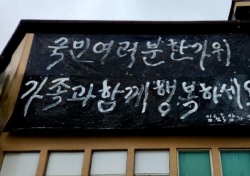 국민여러분 한가위
가족과 함께 행복하세요